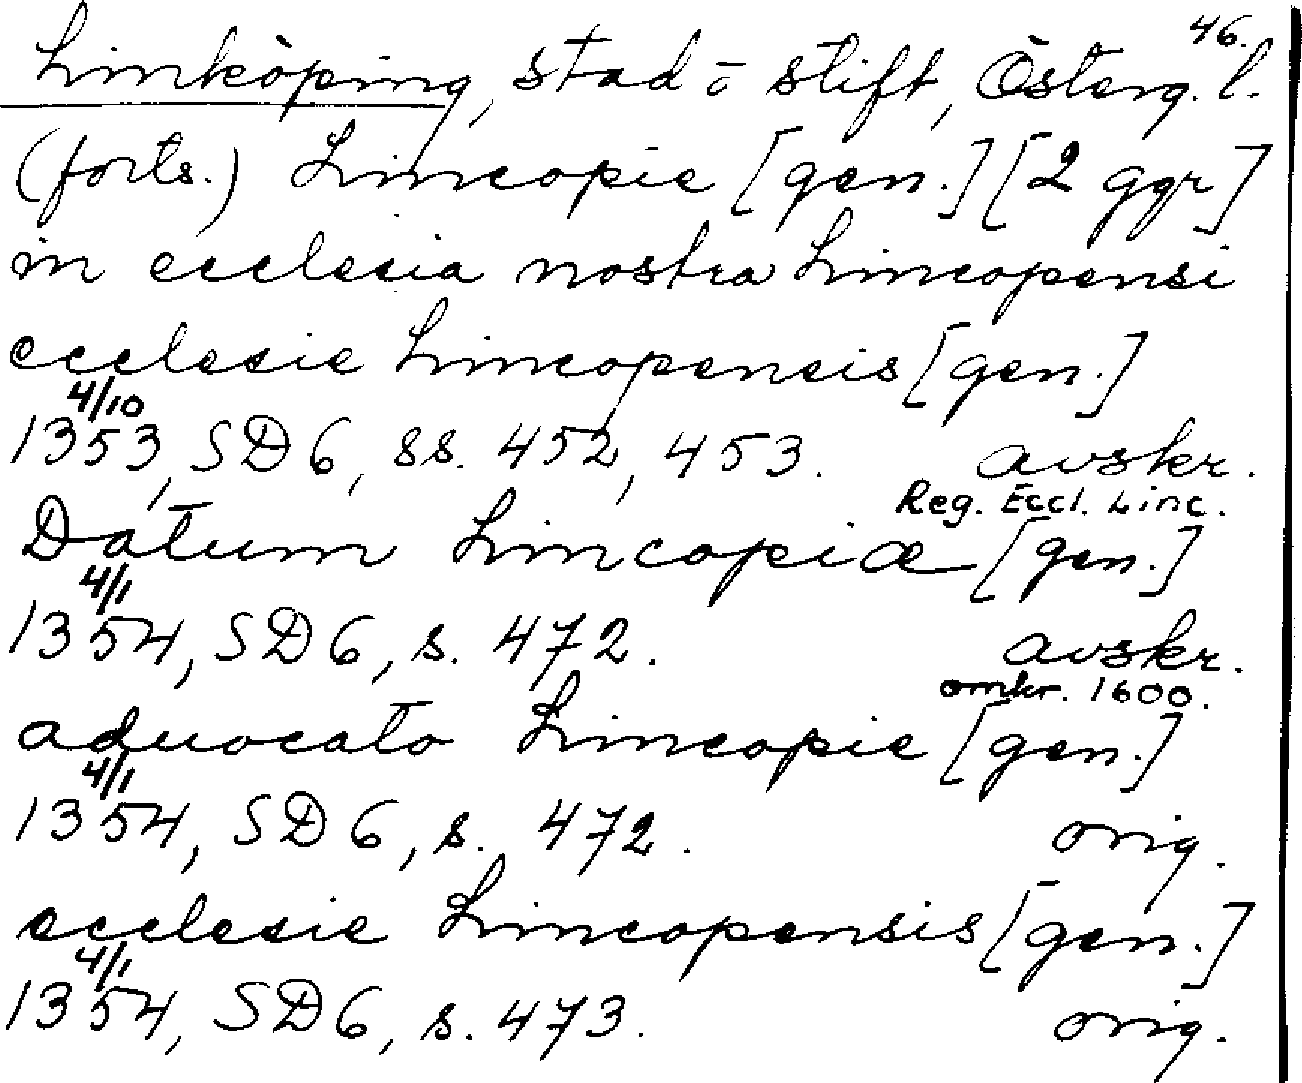 46.
Linköping, stad o stift, Österg. l.
(forts.) Lincopie [gen.] [2 ggr]
in ecclesia nostra Lincopensi
ecclesie Lincopensis [gen.]
4/10
1353, SD 6, ss. 452, 453. avskr.
Reg. Eccl. Linc.
Datum Lincopiæ [gen.]
4/1
1354, SD 6, s. 472. avskr.
omkr. 1600.
aduocato Lincopie [gen.]
4/1
1354, SD 6, s. 472. orig.
ecclesie Lincopensis [gen.]
4/1
1354, SD 6, s. 473. orig.